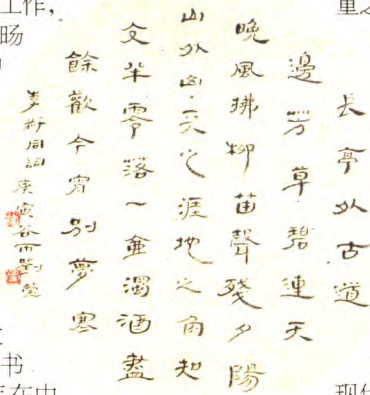 工作，
旸
长亭外古道
邊芳草碧連天
晚風拂柳笛聲殘夕陽
山外山天之涯地之角知
交半零落一壺濁酒盡
餘歡今宵別夢寒
李叔同詞 庚寅谷雨劉
书
在中